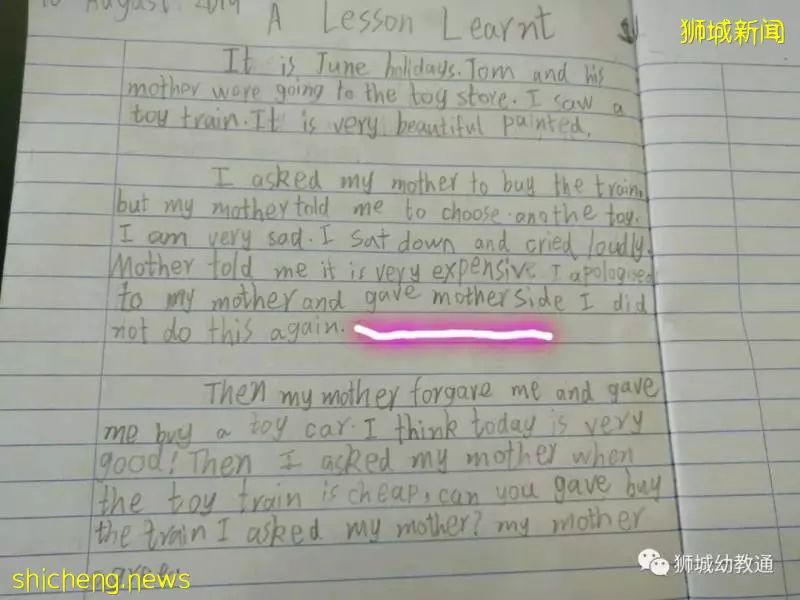 August. 2019
A Lesson Learnt
狮城新闻
It is June holidays. Tom and his
mother were going to the toy store. I saw a
toy train. It is very beautiful painted.
I asked my mother to buy the train,
but my mother told me to choose anothe toy.
I am very sad. I sat down and cried loudly.
Mother told me it is very expensive. I apologised
to my mother and gave mother side I did
not do this again.
Then my mother forgave me and gave
me buy a toy car. I think today is very
good! Then I asked my mother when
the toy train is cheap, can you gave buy
the train I asked my mother? my mother
狮城幼教通
shicheng.news